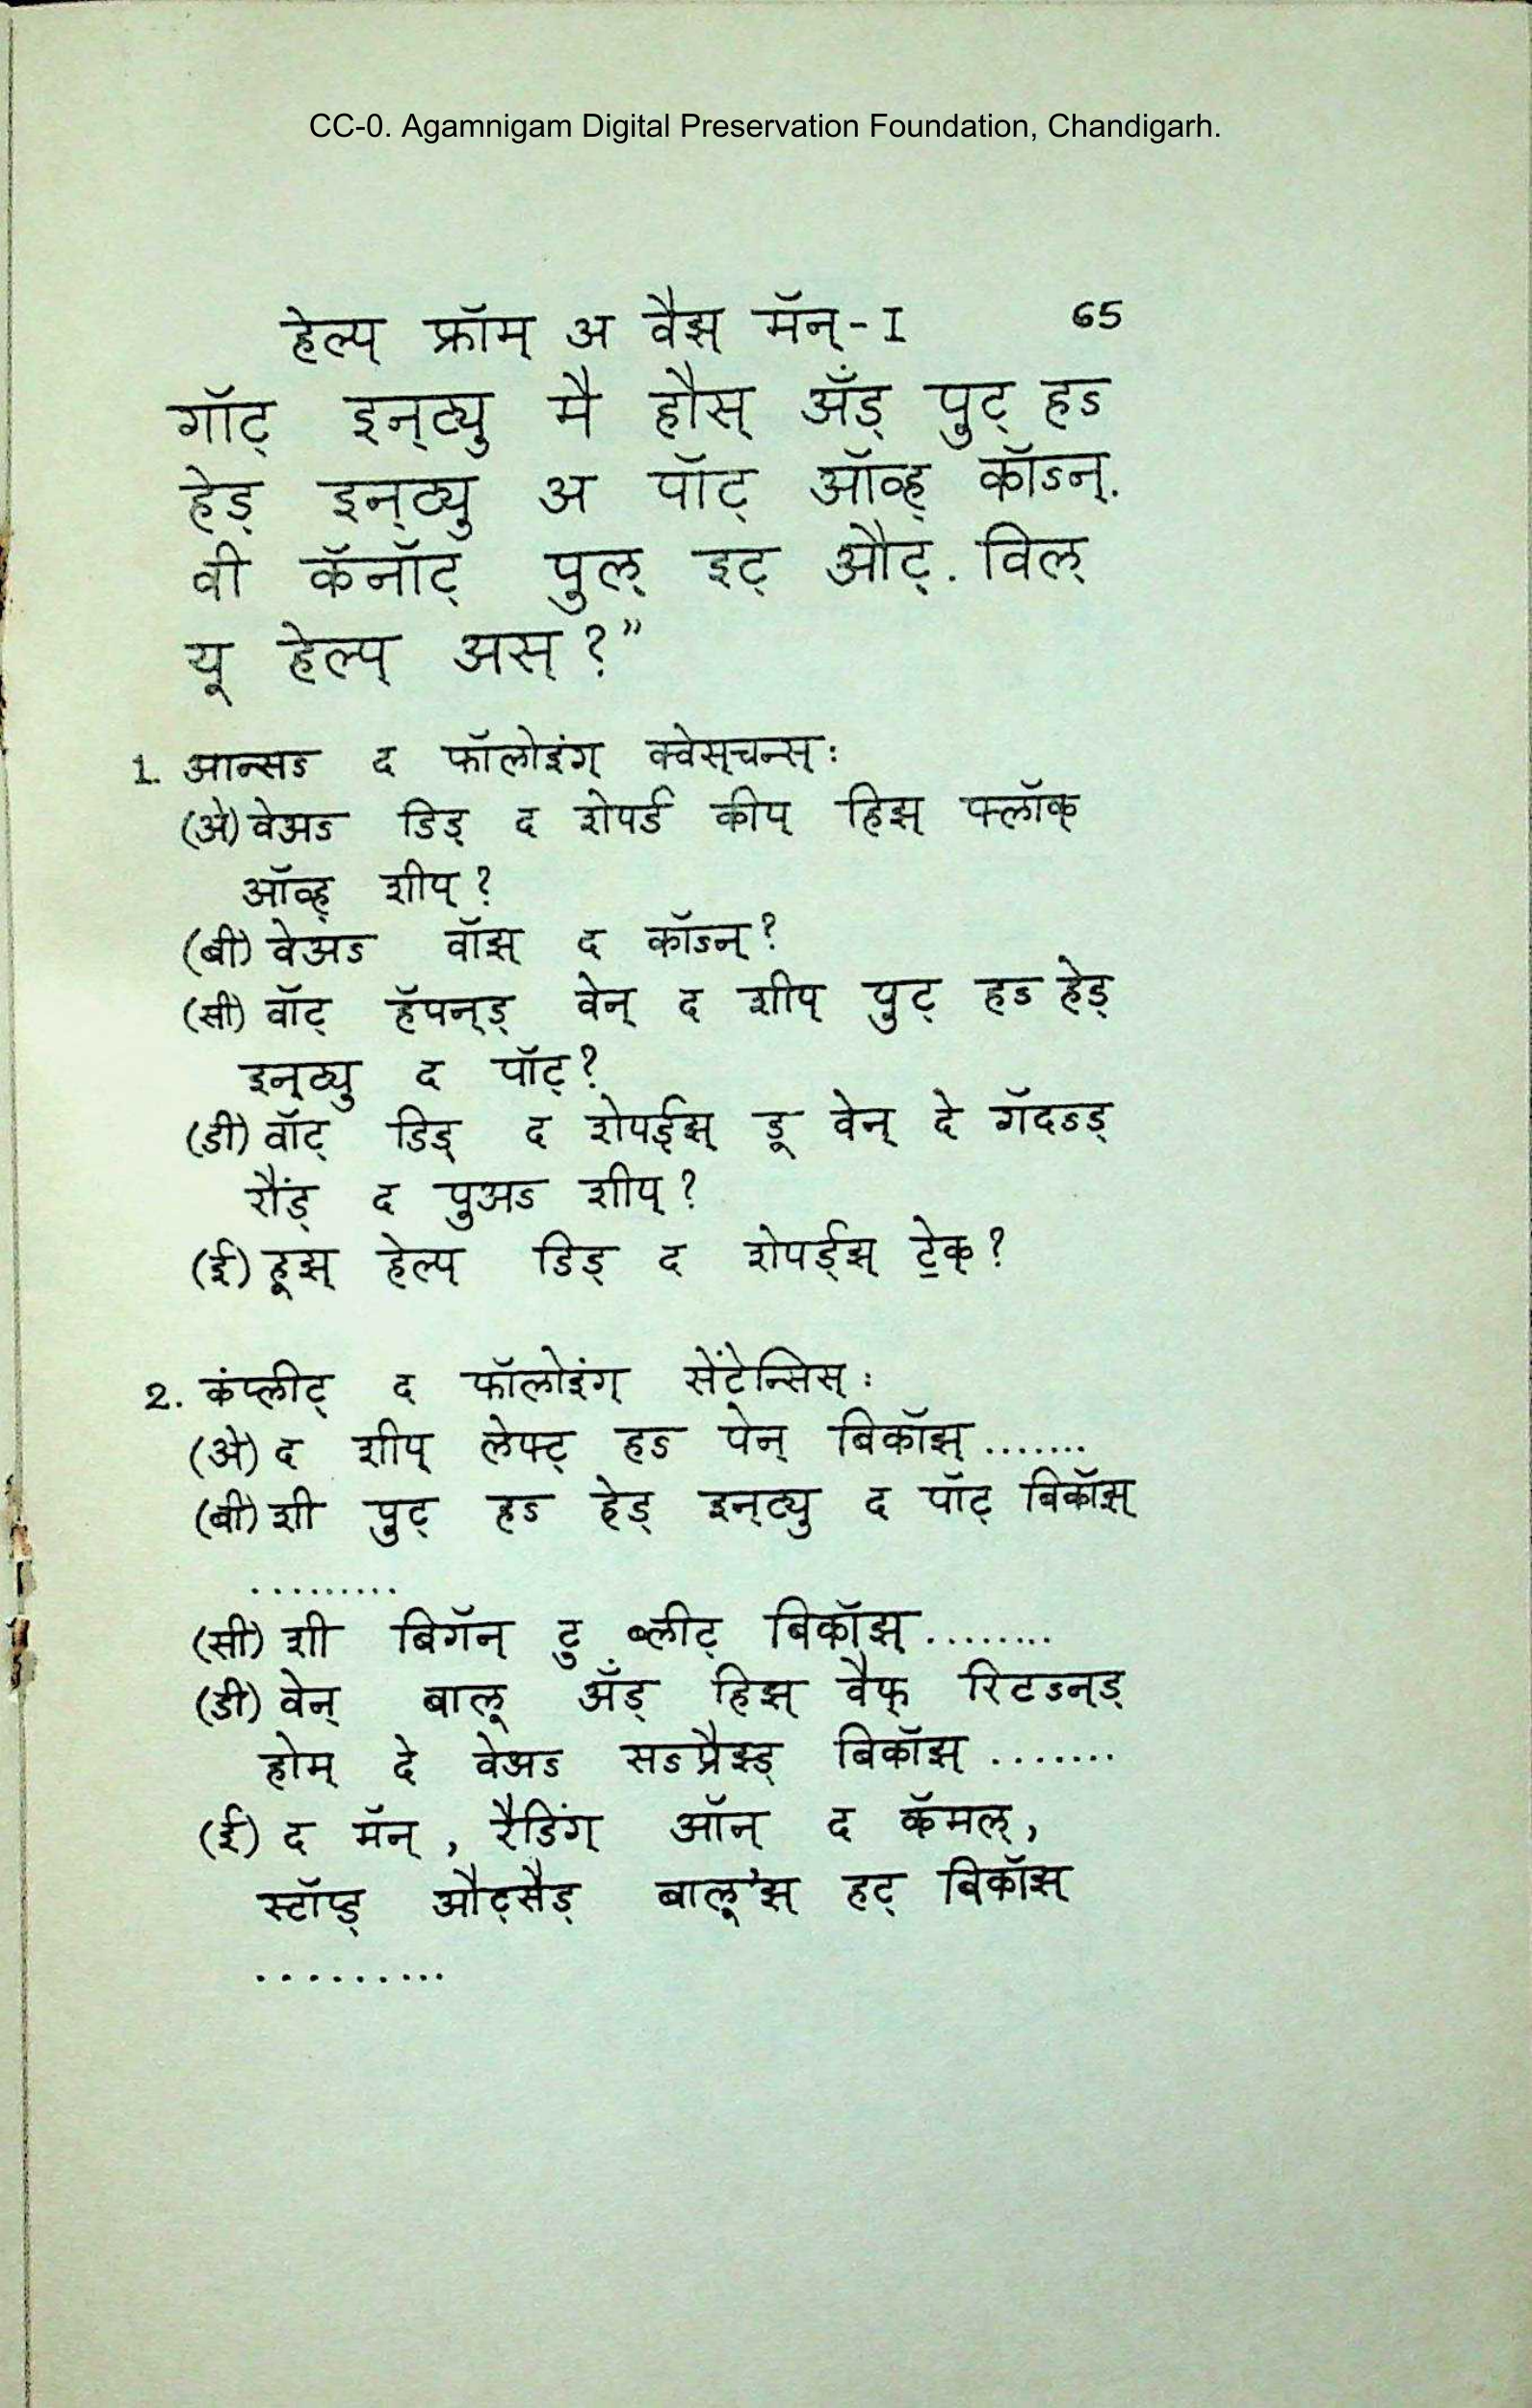 CC-0. Agamnigam Digital Preservation Foundation, Chandigarh.
हेल्प् फ्रॉम् अ वैझ् मॅन्-I 65
गॉट् इन्‌ट्यु मै हौस् अँड् पुट् हऽ
हेड् इन्‌ट्यु अ पॉट् ऑव्ह् कॉऽन्.
वी कॅनॉट् पुल् इट् औट्. विल्
यू हेल्प् अस् ?”
1. आन्सऽ द फॉलोइंग् क्वेस्‌चन्स् :
(अे) वेअऽ डिड् द शेपर्ड कीप् हिझ् फ्लॉक्
ऑव्ह् शीप् ?
(बी) वेअऽ वॉझ् द कॉऽन् ?
(सी) वॉट् हॅपन्ड् वेन् द शीप् पुट् हऽ हेड्
इन्‌ट्यु द पॉट् ?
(डी) वॉट् डिड् द शेपर्ड्झ् डू वेन् दे गॅदऽड्
रौंड् द पुअऽ शीप् ?
(ई) हूझ् हेल्प् डिड् द शेपर्ड्झ् टे॒क् ?
2. कंप्लीट् द फॉलोइंग् सेंटेन्सिस् :
(अे) द शीप् लेफ्ट् हऽ पेन् बिकॉझ् .......
(बी) शी पुट् हऽ हेड् इन्‌ट्यु द पॉट् बिकॉझ्
.........
(सी) शी बिगॅन् टु ब्लीट् बिकॉझ् ........
(डी) वेन् बालू अँड् हिझ् वैफ् रिटऽन्‌ड्
होम् दे वेअऽ सऽप्रैझ्ड् बिकॉझ् .......
(ई) द मॅन् , रैडिंग् ऑन् द कॅमल्,
स्टॉप्ड् औट्सैड् बालू'झ् हट् बिकॉझ्
.........